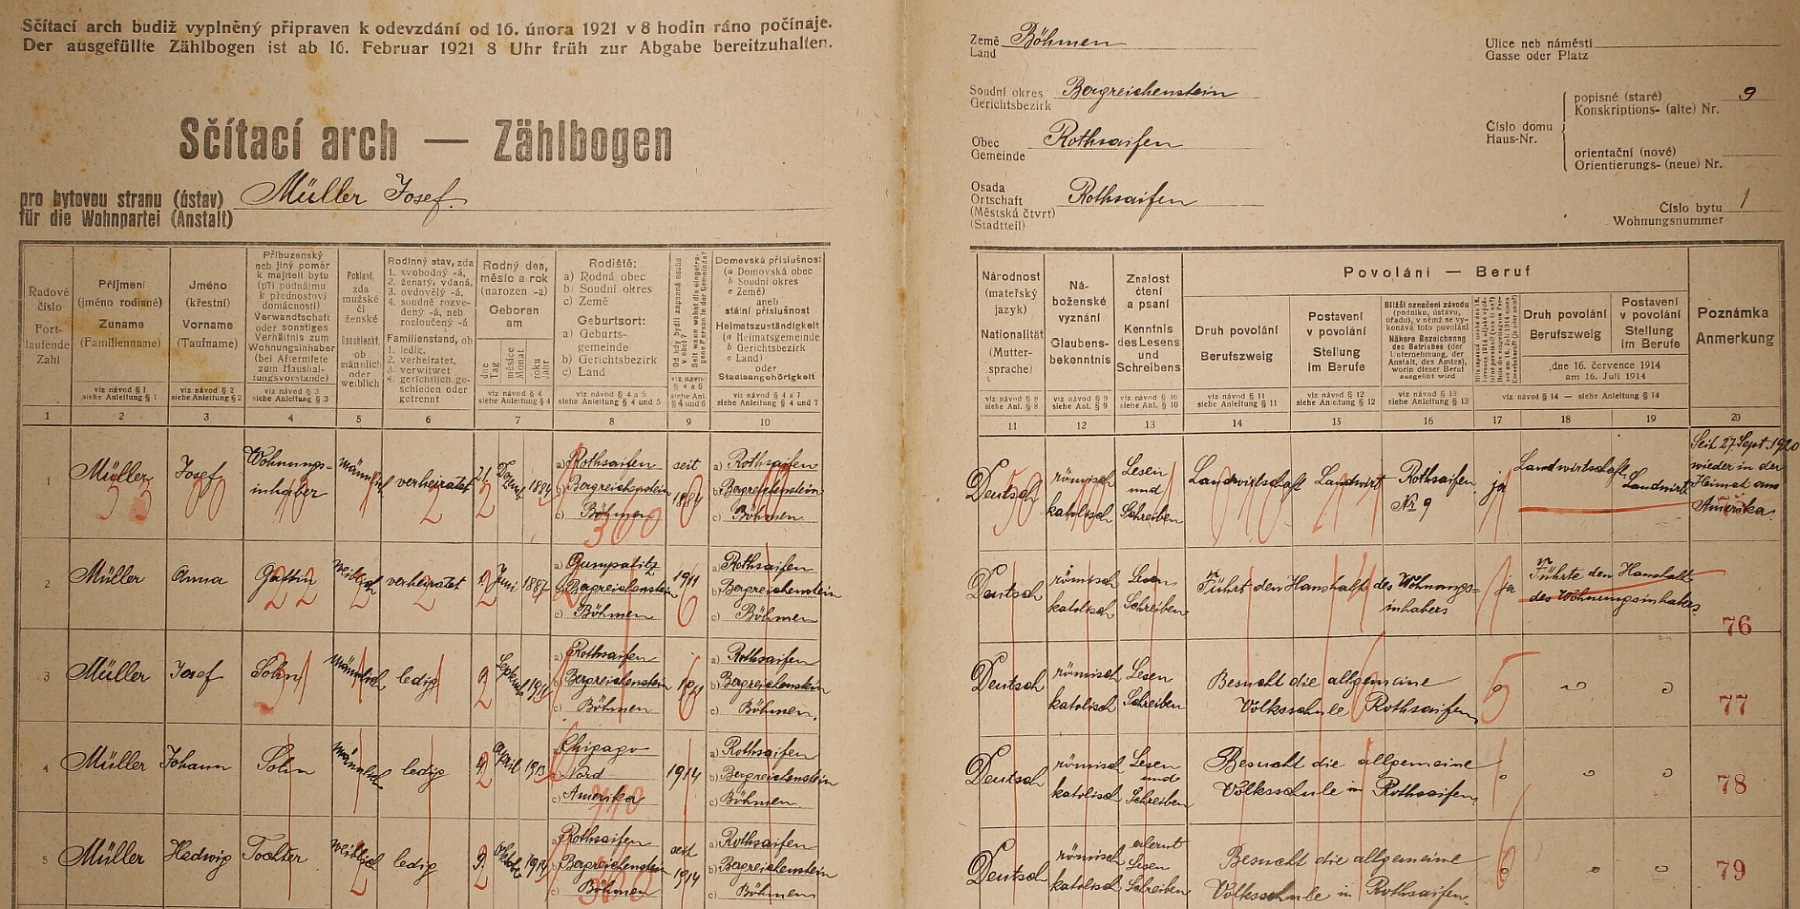 Sčítací arch budiž vyplněný připraven k odevzdání od 16. února 1921 v 8 hodin ráno počínaje.
Der ausgefüllte Zählbogen ist ab 16. Februar 1921 8 Uhr früh zur Abgabe bereitzuhalten.
Sčítací arch — Zählbogen
pro bytovou stranu (ústav)
für die Wohnpartei (Anstalt)
Müller Josef.
Země
Land
Böhmen
Soudní okres
Gerichtsbezirk
Bergreichenstein
Obec
Gemeinde
Rothsaifen
Osada
Ortschaft
(Městská čtvrť)
(Stadtteil)
Rothsaifen
Ulice neb náměstí
Gasse oder Platz
Číslo domu
Haus-Nr.
popisné (staré)
Konskriptions- (alte) Nr.
9
orientační (nové)
Orientierungs- (neue) Nr.
Číslo bytu
Wohnungsnummer
1
Řadové
číslo
Fort-
laufende
Zahl
1
Příjmení
(jméno rodinné)
Zuname
(Familienname)
viz návod § 1
siehe Anleitung § 1
2
Jméno
(křestní)
Vorname
(Taufname)
viz návod § 2
siehe Anleitung § 2
3
Příbuzenský
neb jiný poměr
k majiteli bytu
(při podnájmu
k přednostovi
domácnosti)
Verwandtschaft
oder sonstiges
Verhältnis zum
Wohnungsinhaber
(bei Aftermiete
zum Haushal-
tungsvorstande)
viz návod § 3
siehe Anleitung § 3
4
Pohlaví,
zda
mužské
či
ženské
Geschlecht,
ob
männlich
oder
weiblich
5
Rodinný stav, zda
1. svobodný -á,
2. ženatý, vdaná,
3. ovdovělý -á,
4. soudně rozve-
dený -á, neb
rozloučený -á
Familienstand, ob
1. ledig,
2. verheiratet,
3. verwitwet
4. gerichtlich ge-
schieden oder
getrennt
6
Rodný den,
měsíc a rok
(narozen -a)
Geboren
am
dne
Tag
měsíce
Monat
roku
Jahr
viz návod § 4
siehe Anleitung § 4
7
Rodiště:
a) Rodná obec
b) Soudní okres
c) Země
Geburtsort:
a) Geburts-
gemeinde
b) Gerichtsbezirk
c) Land
viz návod § 4 a 5
siehe Anleitung § 4 und 5
8
Od kdy bydlí zapsaná osoba
v obci?
Seit wann wohnt die eingetra-
gene Person in der Gemeinde?
9
Domovská příslušnost
(a Domovská obec
b Soudní okres
c Země)
aneb
státní příslušnost
Heimatszuständigkeit
(a Heimatsgemeinde
b Gerichtsbezirk
c Land)
oder
Staatsangehörigkeit
viz návod § 4 a 7
siehe Anleitung § 4 und 7
10
Národnost
(mateřský
jazyk)
Nationalität
(Mutter-
sprache)
viz návod § 8
siehe Anl. § 8
11
Ná-
boženské
vyznání
Glaubens-
bekenntnis
viz návod § 9
siehe Anl. § 9
12
Znalost
čtení
a psaní
Kenntnis
des Lesens
und
Schreibens
viz návod § 10
siehe Anl. § 10
13
Povolání — Beruf
Druh povolání
Berufszweig
viz návod § 11
siehe Anleitung § 11
14
Postavení
v povolání
Stellung
im Berufe
viz návod § 12
siehe Anleitung § 12
15
Bližší označení závodu
(podniku, ústavu,
úřadu), v němž se vy-
konává toto povolání
Nähere Bezeichnung
des Betriebes (der
Unternehmung, der
Anstalt, des Amtes),
worin dieser Beruf
ausgeübt wird
viz návod § 13
siehe Anleitung § 13
16
17
Druh povolání
Berufszweig
Postavení
v povolání
Stellung
im Berufe
dne 16. července 1914
am 16. Juli 1914
viz návod § 14 — siehe Anleitung § 14
18
19
Poznámka
Anmerkung
20
1
Müller
Josef
Wohnungs-
inhaber
männlich
verheiratet
21.
1884
a) Rothsaifen
b) Bergreichenstein
c) Böhmen
seit
1884
a) Rothsaifen
b) Bergreichenstein
c) Böhmen
Deutsch
römisch
katolisch
Lesen
und
Schreiben
Landwirtschaft
Landwirt
Rothsaifen
Nr 9
ja
Landwirtschaft
Landwirt
Seit 27. Sept. 1920
wieder in der
Heimat aus
Amerika.
2
Müller
Anna
Gattin
weiblich
verheiratet
Juni
1887
a) Gumpalitz
b) Bergreichenstein
c) Böhmen
1911
a) Rothsaifen
b) Bergreichenstein
c) Böhmen
Deutsch
römisch
katolisch
Lesen
Schreiben
Führt den Haushalt des Wohnungs-
inhabers
ja
Führte den Haushalt
des Wohnungsinhabers
76
3
Müller
Josef
Sohn
männlich
ledig
2
September
a) Rothsaifen
b) Bergreichenstein
c) Böhmen
a) Rothsaifen
b) Bergreichenstein
c) Böhmen.
Deutsch
römisch
katolisch
Lesen
Schreiben
Besucht die allgemeine
Volksschule Rothsaifen
77
4
Müller
Johann
Sohn
männlich
ledig
4.
April
1913
Chicago
Nord
c) Amerika
1914
a) Rothsaifen
b) Bergreichenstein
c) Böhmen
Deutsch
römisch
katolisch
Lesen
und
Schreiben
Besucht die allgemeine
Volksschule in Rothsaifen
78
5
Müller
Hedwig
Tochter
weiblich
ledig
9.
Oktober
1914
a) Rothsaifen
b) Bergreichenstein
c) Böhmen
seit
1914
a) Rothsaifen
b) Bergreichenstein
c) Böhmen
Deutsch
römisch
katolisch
erlernt
Lesen
Schreiben
Besucht die allgemeine
Volksschule in Rothsaifen.
79